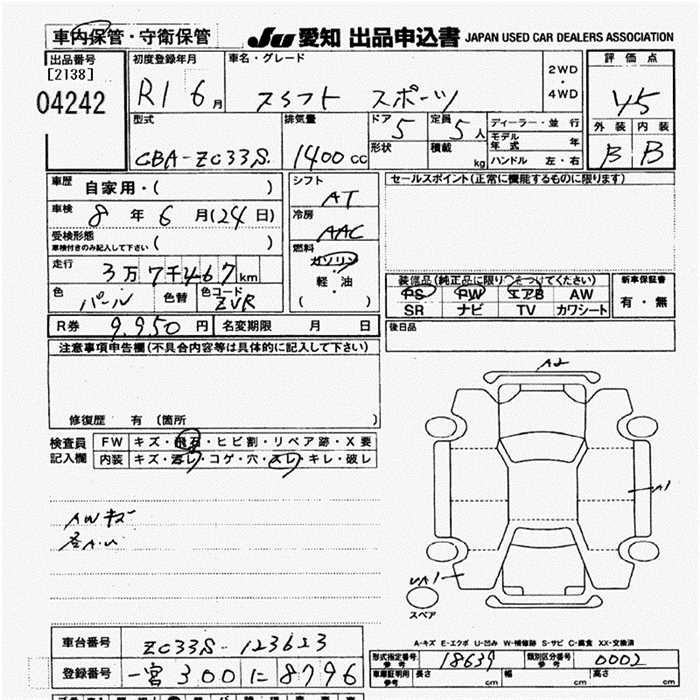 車内保管・守衛保管
JU 愛知 出品申込書 JAPAN USED CAR DEALERS ASSOCIATION
出品番号
[2138]
04242
初度登録年月
R1 6月
車名・グレード
スイフト スポーツ
2WD
・
4WD
評価点
4.5
外装 内装
B B
型式
CBA-ZC33S.
排気量
1400cc
ドア
5
形状
定員
5人
積載
kg
ディーラー・並行
モデル年式 年
ハンドル 左・右
車歴
自家用・( )
車検
8年6月(24日)
受検形態
車検付きのみ記入して下さい ( )
走行
3万7千467km
色
パール
色替
色コード
ZVR
シフト
AT
冷房
AAC
燃料
ガソリン
軽・油
( )
R券 9,950円 名変期限 月 日
セールスポイント(正常に機能するものに限ります)
装備品(純正品に限り○をつけてください)
PS PW エアB AW
SR ナビ TV カワシート
新車保証書
有・無
後日品
注意事項申告欄(不具合内容等は具体的に記入して下さい)
修復歴 有 (箇所 )
検査員
記入欄
FW キズ・飛石・ヒビ割・リペア跡・X要
内装 キズ・汚レ・コゲ・穴・スレ・キレ・破レ
AWキズ
A2
A1
UA1
スペア
A-キズ E-エクボ U-凹み W-補修跡 S-サビ C-腐食 XX-交換済
車台番号 ZC33S-123623
登録番号 一宮 300 に 8796
形式指定番号
参考
18639
類別区分番号
参考
0002
車庫証明用
参考
長さ cm 幅 cm 高さ cm